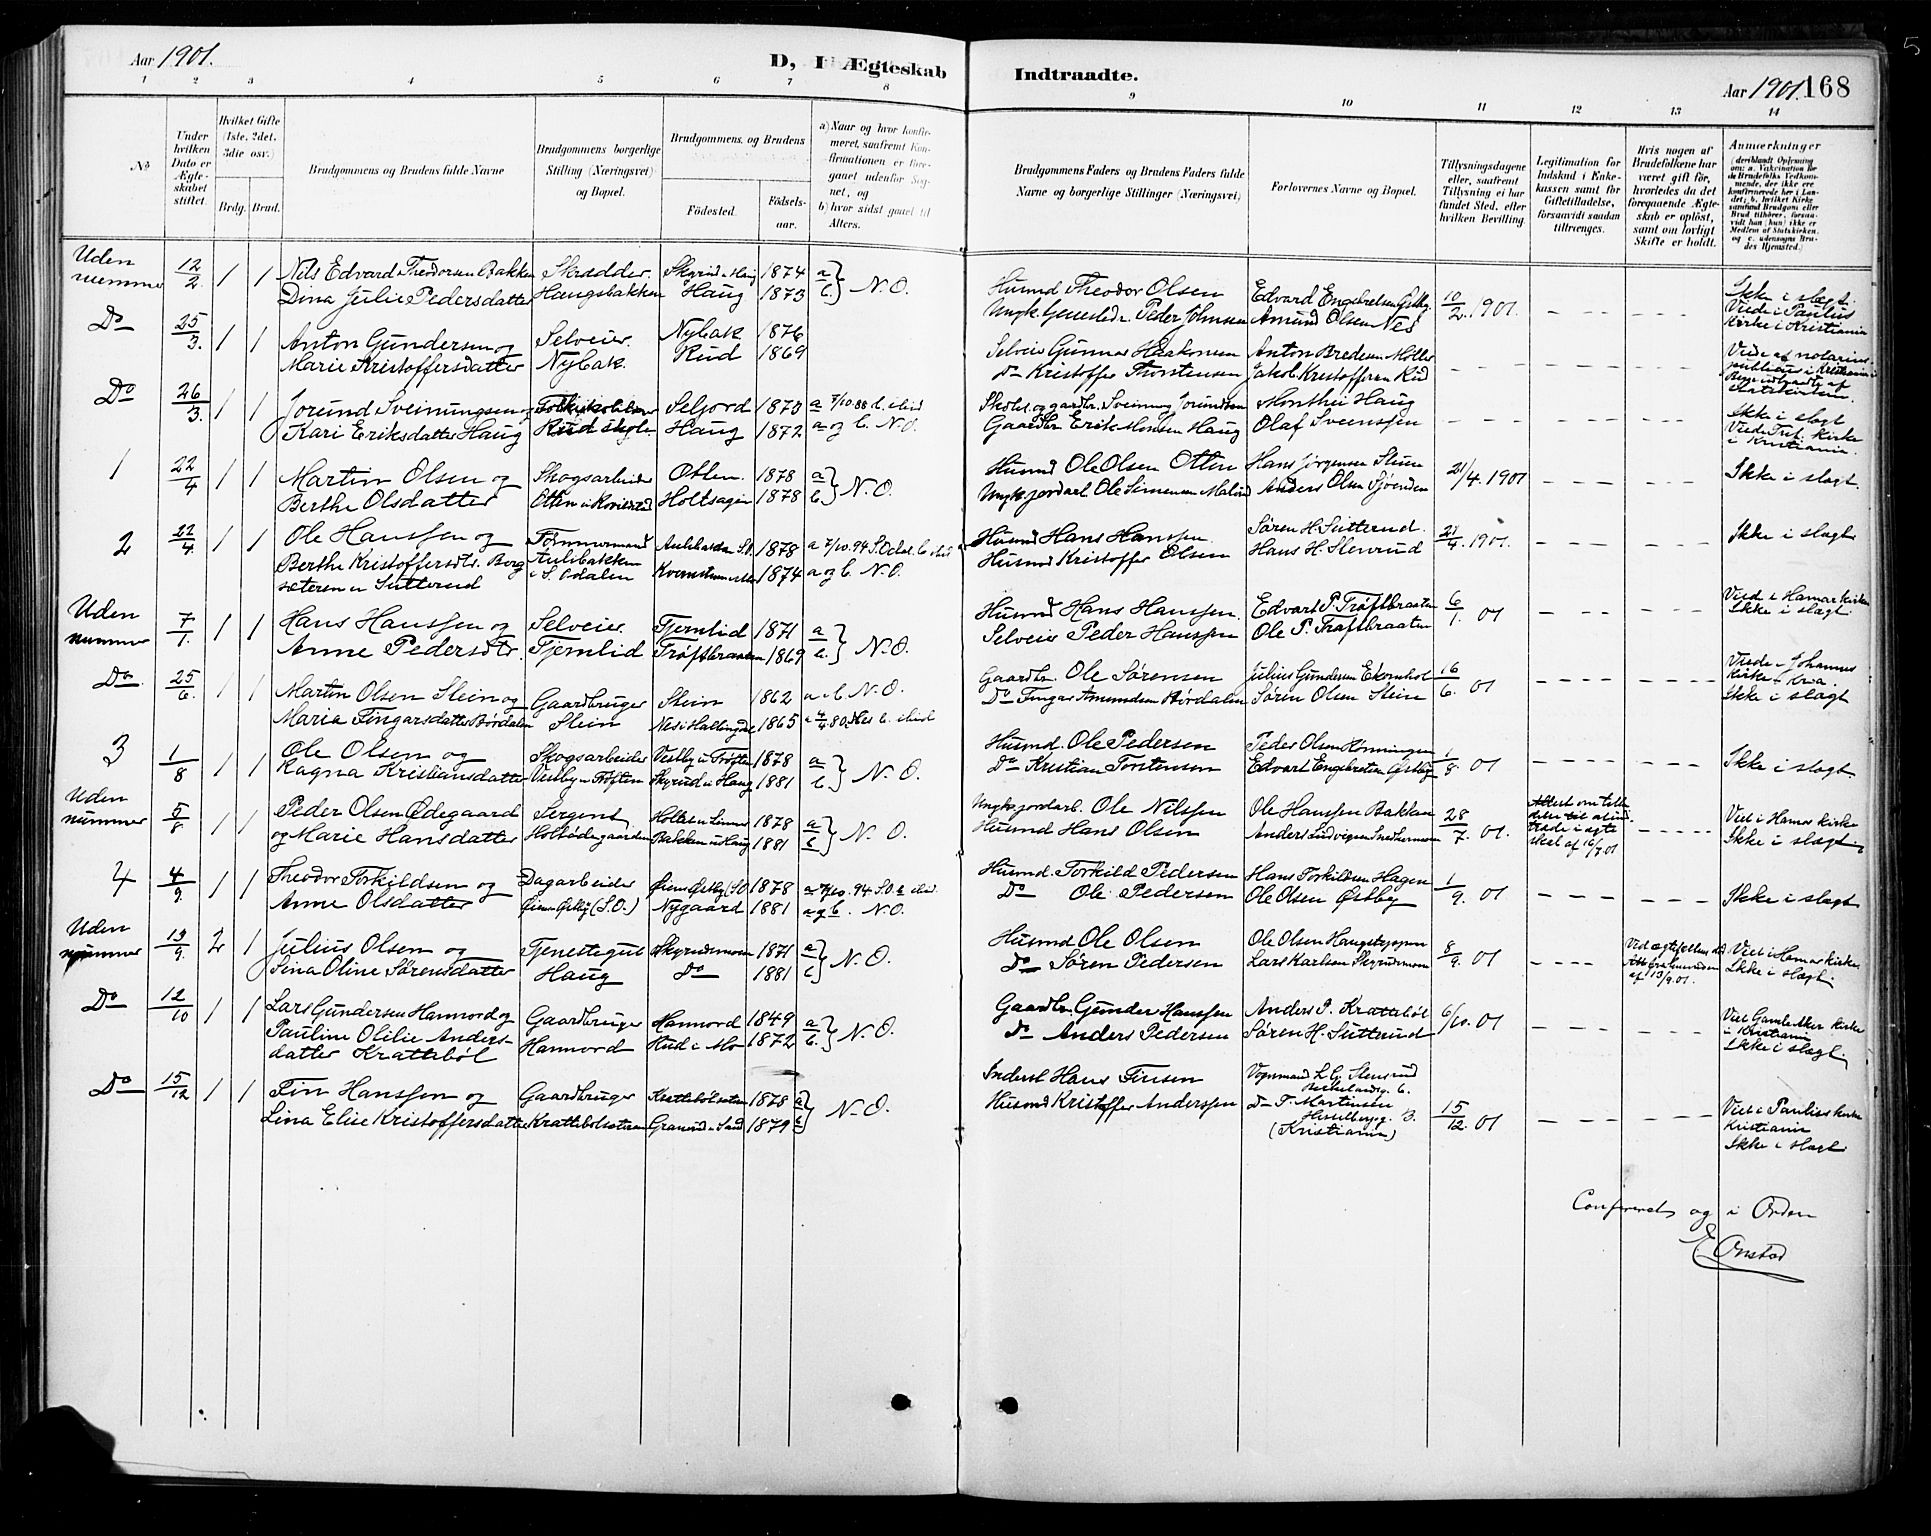 Aar 1901.
D, I Ægteskab
Indtraadte.
Aar 1901. 168
5
1 2 3 4 5 6 7 8 9 10 11 12 13 14
No
Under hvilken Dato er Ægteskabet stiftet.
Hvilket Gifte (1ste, 2det, 3die osv.)
Brdg. Brud.
Brudgommens og Brudens fulde Navne
Brudgommens borgerlige Stilling (Næringsvei) og Bopæl.
Brudgommens og Brudens
Fødested.
Fødselsaar.
a) Naar og hvor konfirmeret, saafremt Konfirmationen er foregaaet udenfor Sognet, og
b) hvor sidst gaaet til Alters.
Brudgommens Faders og Brudens Faders fulde Navne og borgerlige Stillinger (Næringsvei)
Forlovernes Navne og Bopæl.
Tillysningsdagene eller, saafremt Tillysning ei har fundet Sted, efter hvilken Bevilling
Legitimation for Indskud i Enkekassen samt for Giftetilladelse, forsaavidt saadan tiltrænges.
Hvis nogen af Brudefolkene har været gift før, hvorledes da det foregaaende Ægteskab er opløst, samt om lovligt Skifte er holdt.
Anmærkninger
Uden nummer 12/2 1 1 Nils Edvard Theodorsen Bakken Skrædder. Skyrud u Haug 1874 a
Dina Julie Pedersdatter Haugsbakken Haug 1873 b } N.O.
Husmd Theodor Olsen Edvard Engebretsen Østby 10/2 1901. Ikke i slægt.
Ungk. Peder Johnsen Amund Olsen Nes Viede i Paulus Kirke i Kristiania
Do 25/3. 1 1 Anton Gundersen og Selveier. Nybak 1876
Marie Kristoffersdatter Nybak. Rud 1869
Selveier Gunnar Haakonsen Anton Bredesen Møller Viede af notarius publicus i Kristiania
Do Kristoffer Thorstensen Jakob Kristoffersen Rud
Do 26/3. 1 1 Jorund Sveinungsen og Seljord 1873 a 7/10.88 b. ibid
Kari Eriksdatter Haug Haug 1872 a og b. N.O.
Skolel. og gaardbr. Sveinung Jorundsen Monthei Haug Ikke i slægt
Gaardbr Erik Monsen Haug Olaf Svenssen Viede Tref. Kirke i Kristiania.
1 22/4 1 1 Martin Olsen og Skogsarbeider Otten. 1878 a
Berthe Olsdatter Holtsagen 1878 b. } N.O.
Husmd Ole Olsen Otten Hans Jørgensen Stuen 21/4. 1901 Ikke i slægt.
Ungk. jordarb. Ole Simensen Anders Olsen Sjøenden
2 22/4 1 1 Ole Hanssen og Tømmermand 1878 a 7/10.94 S.Odal. b. ibid
Berthe Kristoffersdtr. Borg Aulibakken 1874 a og b. N.O.
sæteren u Sutterud i S. Odalen
Husmd Hans Hanssen. Søren H. Sutterud. 21/4. 1901. Ikke i slægt
Husmd Kristoffer Olsen Hans H. Slevrud
Uden nummer 7/1. 1 1 Hans Hanssen og Selveier. Tjernlid 1871 a
Anne Pedersdtr. Tjernlid Trøftbraaten 1869 b. } N.O.
Husmd Hans Hanssen. Edvart P. Trøftbraaten 6/1. 01 Viede i Hamar kirke
Selveier Peder Hanssen Ole P. Trøftbraaten Ikke i slægt.
Do 25/6. 1 1 Martin Olsen Stein og Gaardbruger Stein 1862 a. b. N.O.
Maria Fingarsdatter Børdalen Stein Nes i Hallingdal 1865 a 4/4 80 Nes b. ibid
Gaardbr. Ole Sørensen Julius Gundersen Ekornhol 16/6. 01 Viede i Johannes kirke i Kria.
Do Fingar Amundsen Børdalen Søren Olsen Stein Ikke i slægt
3 1/8 1 1 Ole Olsen og Skogsarbeider Vestby u Trøften 1878 a
Ragna Kristiansdatter Vestby u Trøften Skyrud u Haug 1881 b. } N.O.
Husmd. Ole Pedersen Peder Olsen Rønningen 1/8. 01 Ikke i slægt
Do Kristian Torstensen Edvart Engebretsen Østby
Uden nummer 5/8 1 1 Peder Olsen Ødegaard Sergent 1878 a
og Marie Hansdatter Holtsødegaarden Bakken u Haug 1881 b } N.O.
Ungk. jordarb. Ole Nilssen Ole Hanssen Bakken 28/7. 01. Attest om tilladelse til at indtræde i ægteskab af 16/7.01 Viet i Hamar kirke
Husmd Hans Olsen Anders Ludvigsen Ikke i slægt
4 4/9. 1 1 Theodor Torkildsen og Dagarbeider Øiern Østby (S.O) 1878 a 7/10.94 S.O. b. ibid.
Anne Olsdatter Øiern Østby (S.O.) Nygaard 1881 a og b. N.O.
Husmd. Torkild Pedersen Hans Torkildsen Hagen 1/9. 01 Ikke i slægt
Do Ole Pedersen Ole Olsen Østby
Uden nummer 13/9. 2 1 Julius Olsen og Tjenestegut Skyrudsmoen 1871 a
Lina Oline Sørensdatter Haug Do 1881 b } N.O.
Husmd Ole Olsen Ole Olsen Haugstoppen 8/9. 01 af 13/9.01. Viet i Hamar kirke
Do Søren Pedersen Lars Karlsen Skyrudsmoen Ikke i slægt.
Do 12/10 1 1 Lars Gundersen Hannord og Gaardbruger Hannord 1849 a
Pauline Otilie Anders- Hannord Hud i Mo 1872 b. } N.O.
datter Krattebøl
Gaardbr. Gunder Hanssen Anders P. Krattebøl 6/10. 01 Viet Gamle Aker kirke i Kristiania
Do Anders Pedersen Søren H. Sutterud Ikke i slægt
Do 15/12 1 1 Fin Hanssen og Gaardbruger Krattebølsetren 1878 a
Lina Elise Kristoffersdatter Krattebølsetren 1879 b } N.O.
Inderst Hans Finsen Vognmand L.G. Stensrud 15/12. 01 Viet i Paulus kirke Kristiania
Husmd Kristoffer Anderssen Do F. Martinsen (Kristiania) Ikke i slægt
Confereret og i Orden
E Onstad